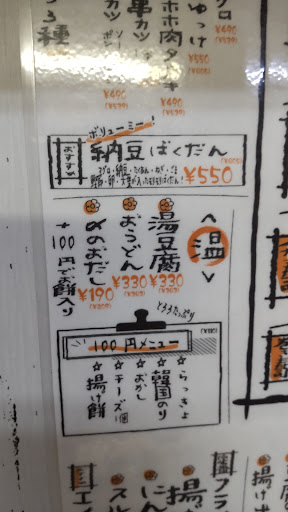 ゆっけ
¥550
(¥605)
¥490
(¥539)
ホホ肉タタキ
¥490
(¥539)
串カツ
¥490
(¥539)
3種
おすすめ
ボリューミー!
納豆ばくだん
¥550
(¥605)
〈温〉
湯豆腐
¥330
(¥363)
おうどん
¥330
(¥363)
〆のおだし
¥190
(¥209)
+100円で餅入り
とろろたっぷり
100円メニュー
(¥110)
☆らっきょ
☆韓国のり
☆おかし
☆チーズ1個
☆揚げ餅
フラ
揚げ
にん
スル
エイ